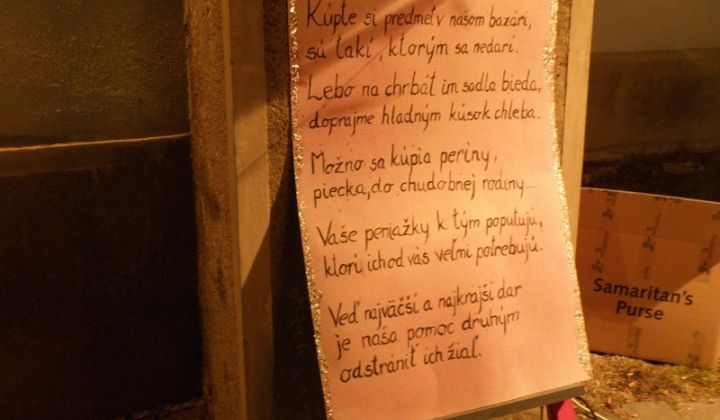 Kúpte si predmet v našom bazári,
sú takí, ktorým sa nedarí.
Lebo na chrbát im sadla bieda,
doprajme hladným kúsok chleba.
Možno sa kúpia periny,
piecka, do chudobnej rodiny...
Vaše peniažky k tým poputujú,
ktorí ich od vás veľmi potrebujú.
Veď najväčší a najkrajší dar
je naša pomoc druhým
odstrániť ich žiaľ.
Samaritan's
Purse